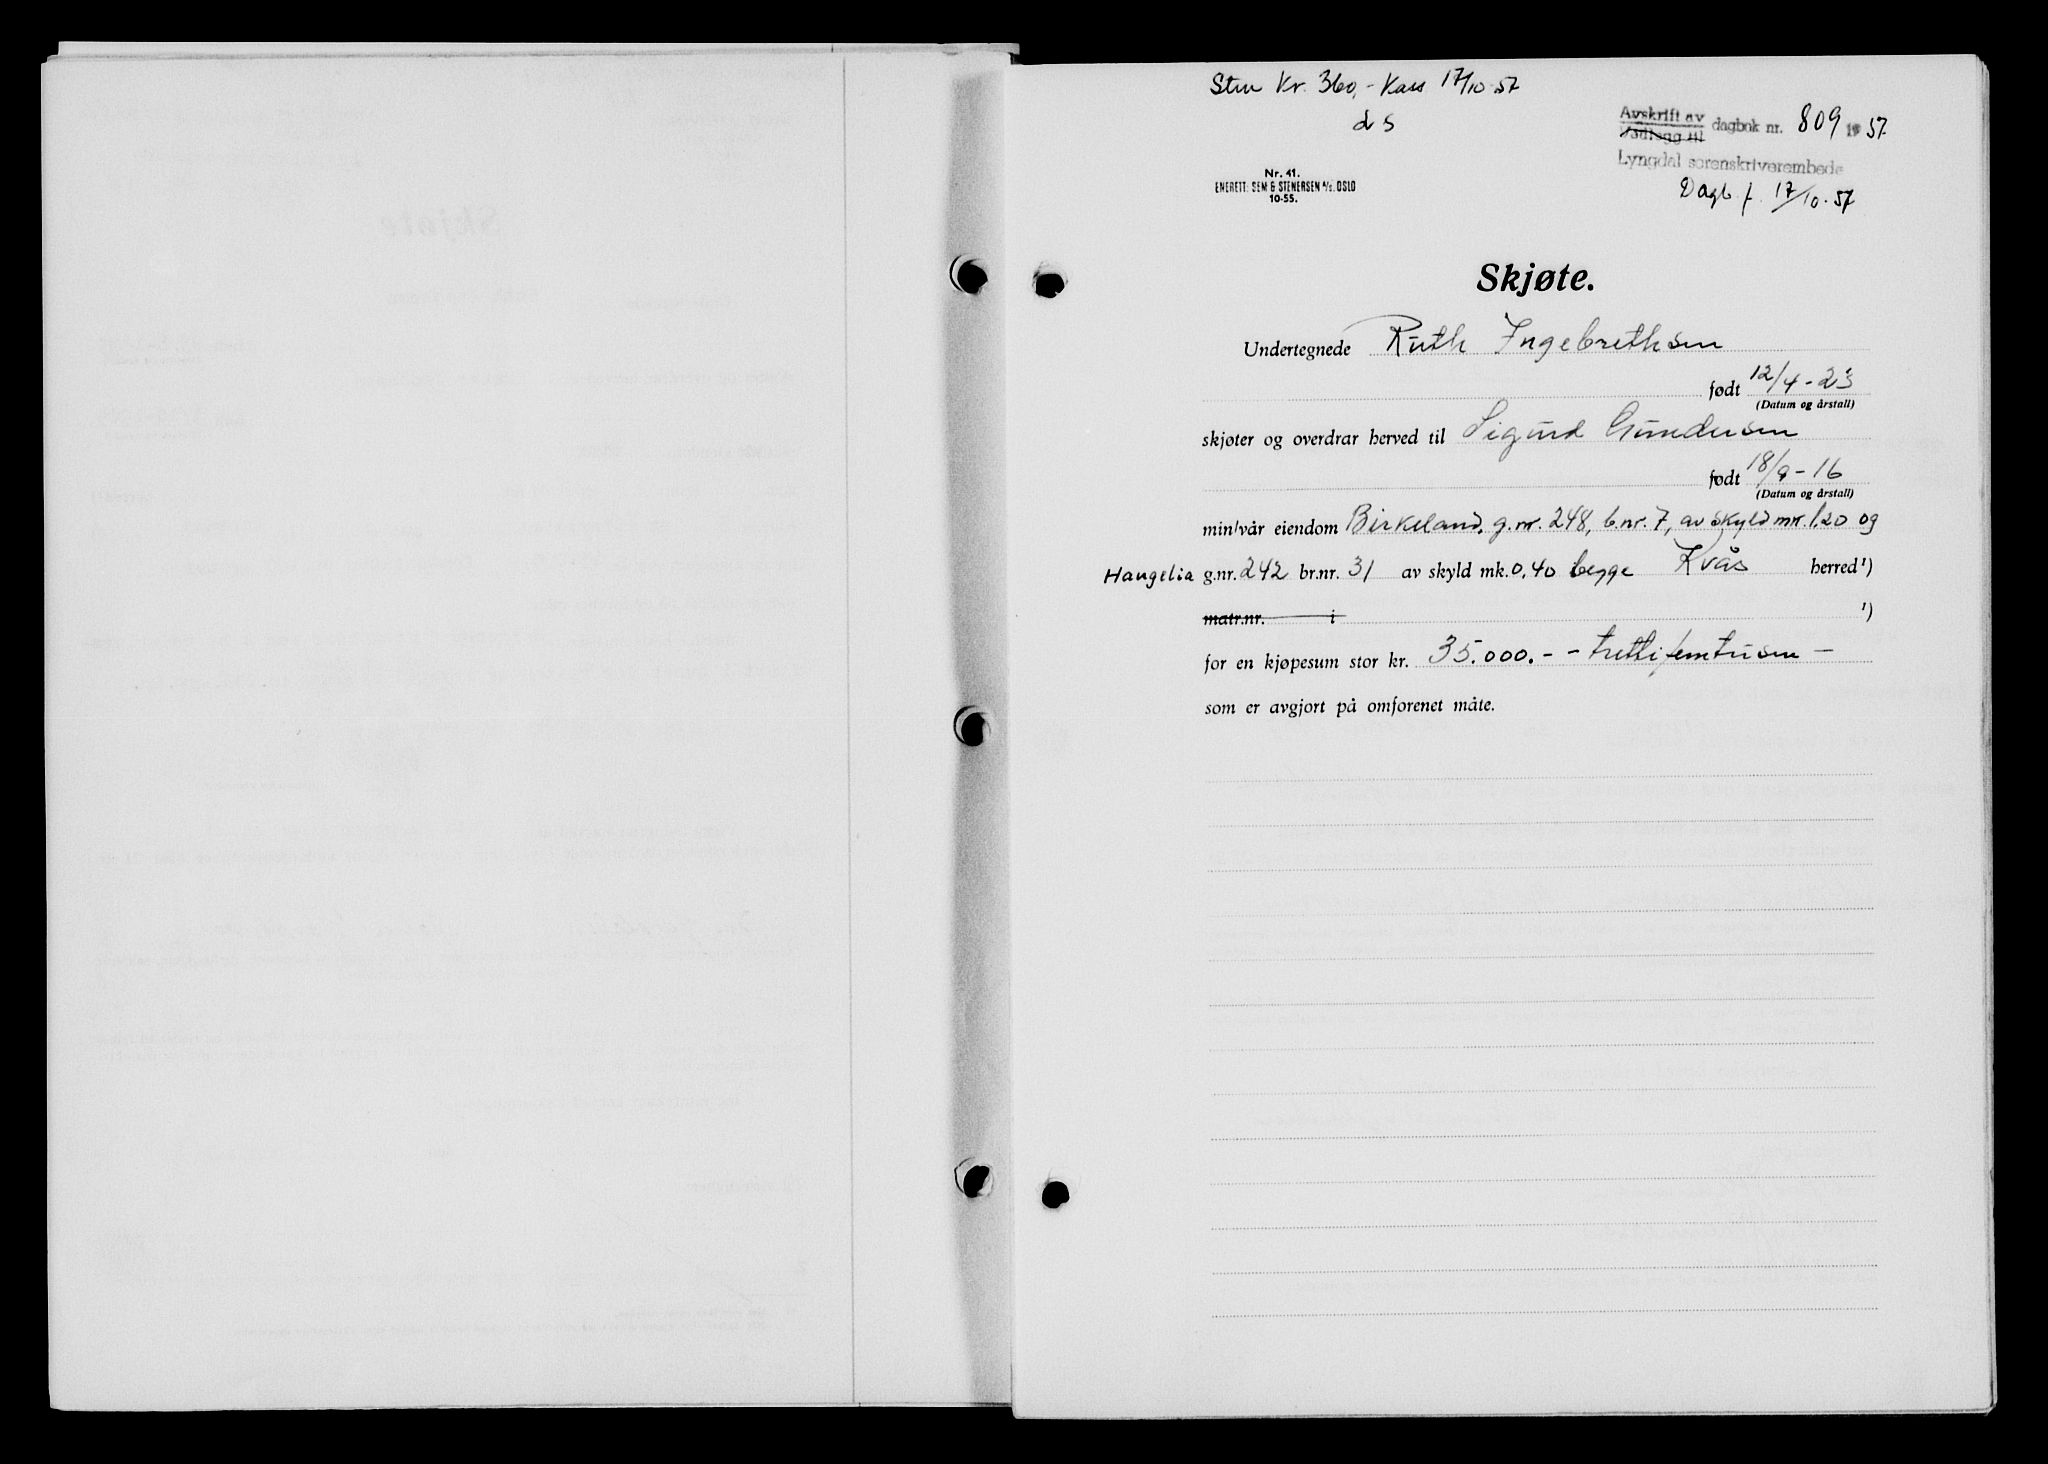 Stm Kr. 360,- Kass 17/10-57
d s
Avskrift av
Vedlegg til
dagbok nr. 809 1957
Lyngdal sorenskriverembede
Dagb. f. 17/10-57
Nr. 41.
ENERETT: SEM & STENERSEN A/S. OSLO
10-55.
Skjøte.
Undertegnede Ruth Ingebrethsen
født 12/4-23
(Datum og årstall)
skjøter og overdrar herved til Sigurd Gundersen
født 18/9-16
(Datum og årstall)
min/vår eiendom Birkeland, g.nr. 248, b.nr. 7, av skyld mk. 1,20 og
Haugelia g.nr. 242 br.nr. 31 av skyld mk. 0,40 begge Kvås herred¹)
matr.nr. i ¹)
for en kjøpesum stor kr. 35.000.- - trettifemtusen -
som er avgjort på omforenet måte.